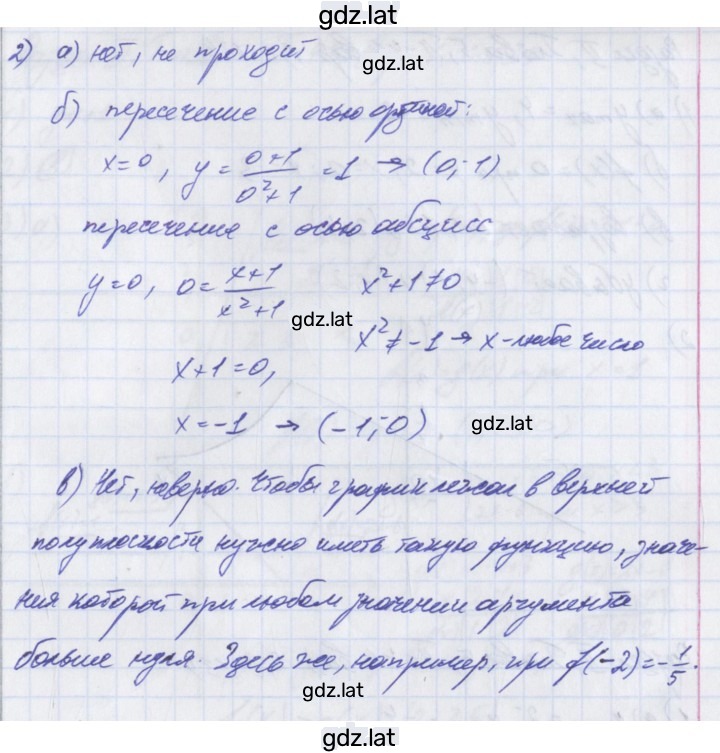 gdz.lat
2) а) нет, не проходит
gdz.lat
б) пересечение с осью ординат:
x=0, y = \frac{0+1}{0^2+1} = 1 → (0;1)
пересечение с осью абсцисс
y=0, 0 = \frac{x+1}{x^2+1} x^2+1≠0
gdz.lat
x^2 ≠ -1 → x-любое число
x+1=0,
x=-1 → (-1;0) gdz.lat
в) Нет, неверно. Чтобы график лежал в верхней
полуплоскости нужно иметь такую функцию, значе-
ния которой при любом значении аргумента
больше нуля. Здесь же, например, при f(-2)=-\frac{1}{5}.
gdz.lat
gdz.lat